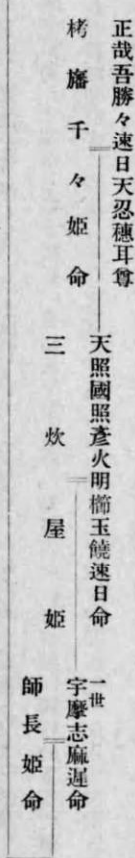 正哉吾勝々速日天忍穗耳尊
栲旛千々姫命
天照國照彥火明櫛玉饒速日命
三炊屋姫
一世
宇摩志麻遲命
師長姫命